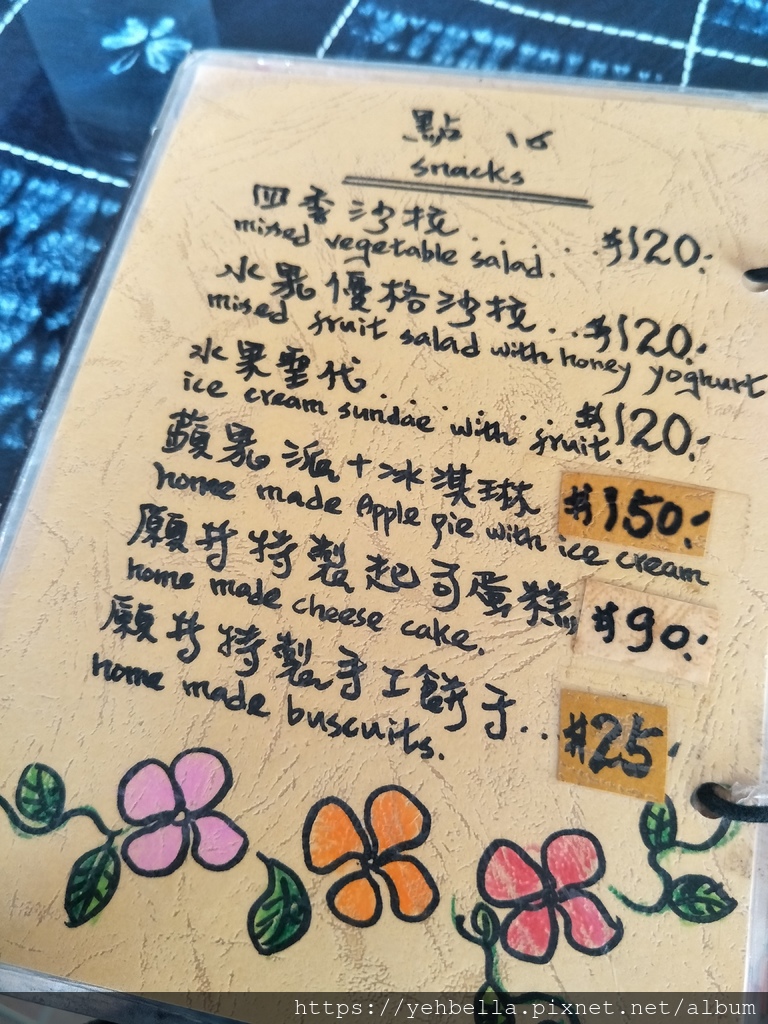 點心
snacks
四季沙拉......$120.-
mixed vegetable salad.
水果優格沙拉...$120.-
mixed fruit salad with honey yoghurt
水果聖代......$120.-
ice cream sundae with fruit.
蘋果派+冰淇琳 $150.-
home made Apple pie with ice cream
願井特製起司蛋糕 $90.-
home made cheese cake.
願井特製手工餅干...$25.-
home made buscuits.
https://yehbella.pixnet.net/album